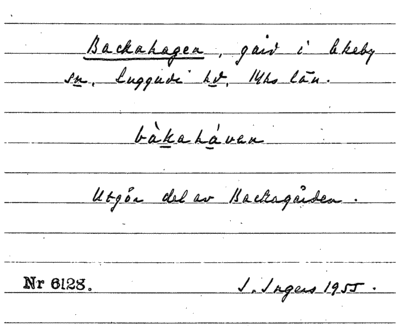 Backahagen, gård i Ekeby
sn, Luggude hd, Mhs län.
bàkahá́ven
Utgör del av Backagården.
Nr 6128. I. Ingers 1955.